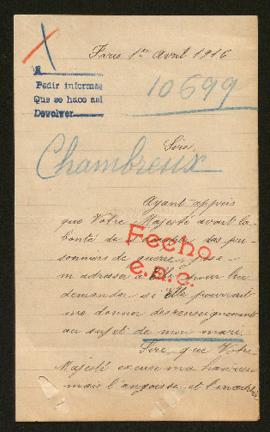 Paris 1er Avril 1916
A
Pedir informes
Que se hace asi
Devolver
10699
Sire,
Chambreux
Ayant appris
que Votre Majesté avait la
bonté de des pri-
sonniers de guerre, j'ose
m'adresser à Elle pour lui
demander si Elle pourrait
me donner des renseignements
au sujet de mon mari.
Fecho
e.a.c.
Que Votre
Majesté excuse ma hardiesse
mais l'angoisse et